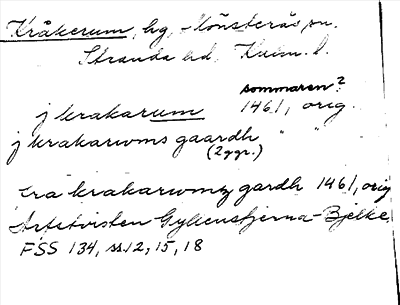 Kråkerum, hg, Mönsterås sn.
Stranda hd. Kalm. l.
sommaren?
j krakarum 1461, orig.
j krakarwms gaardh " "
(2 ggr.)
fra krakarwmz gardh 1461, orig
Arfstvisten Gyllenstjerna-Bjelke,
FSS 134, ss. 12, 15, 18